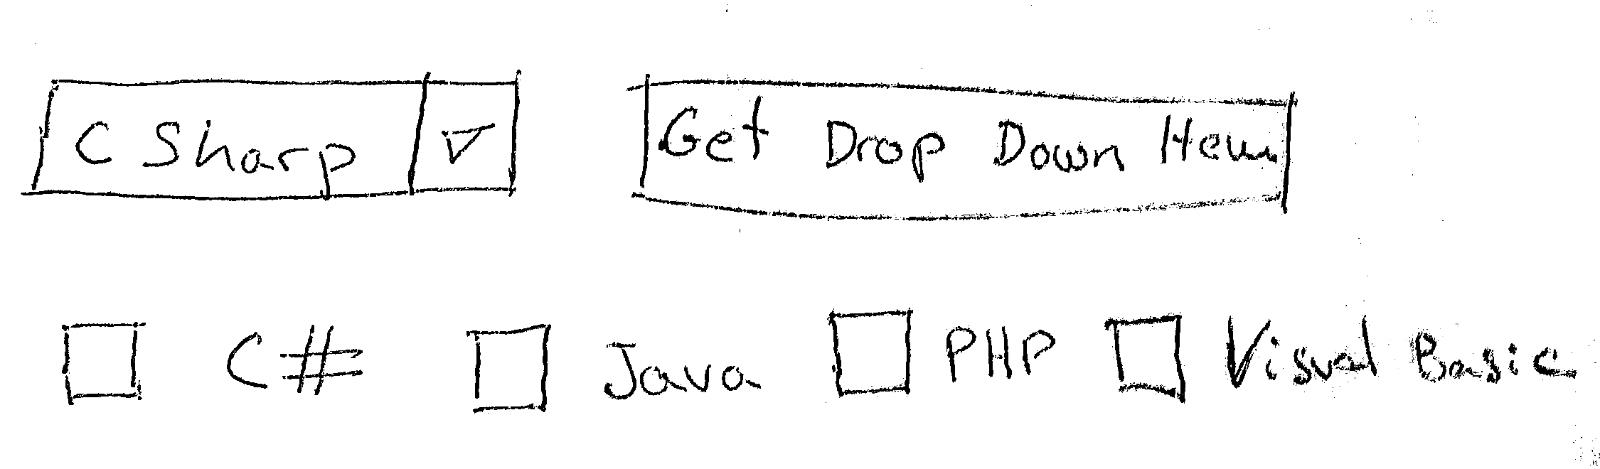 C Sharp Get Drop Down Item
C# Java PHP Visual Basic